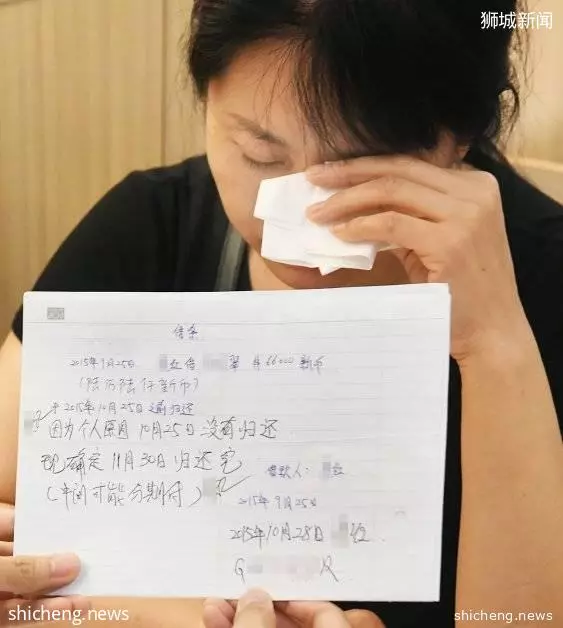 狮城新闻
shicheng.news
借条
2015年9月25日 立借 翠 66000新币
(陆万陆仟新币)
于2015年10月25日前归还
因为个人原因10月25日没有归还
现确定11月30日归还完
(中间可能分期付)
借款人:
2015年9月25日
2015年10月28日
G R
shicheng.news
shicheng.news